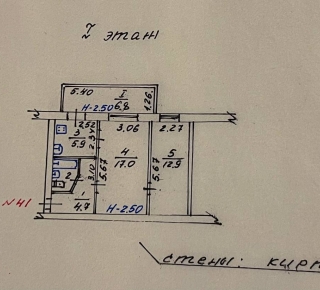 I этаж
5.40
I
6.8
1.26
Н-2.50
2.52
3.06
2.27
3
5.9
2.34
4
17.0
5
12.9
5.67
5.67
2
3.10
1
4.7
Н-2.50
№41
стены: кирп